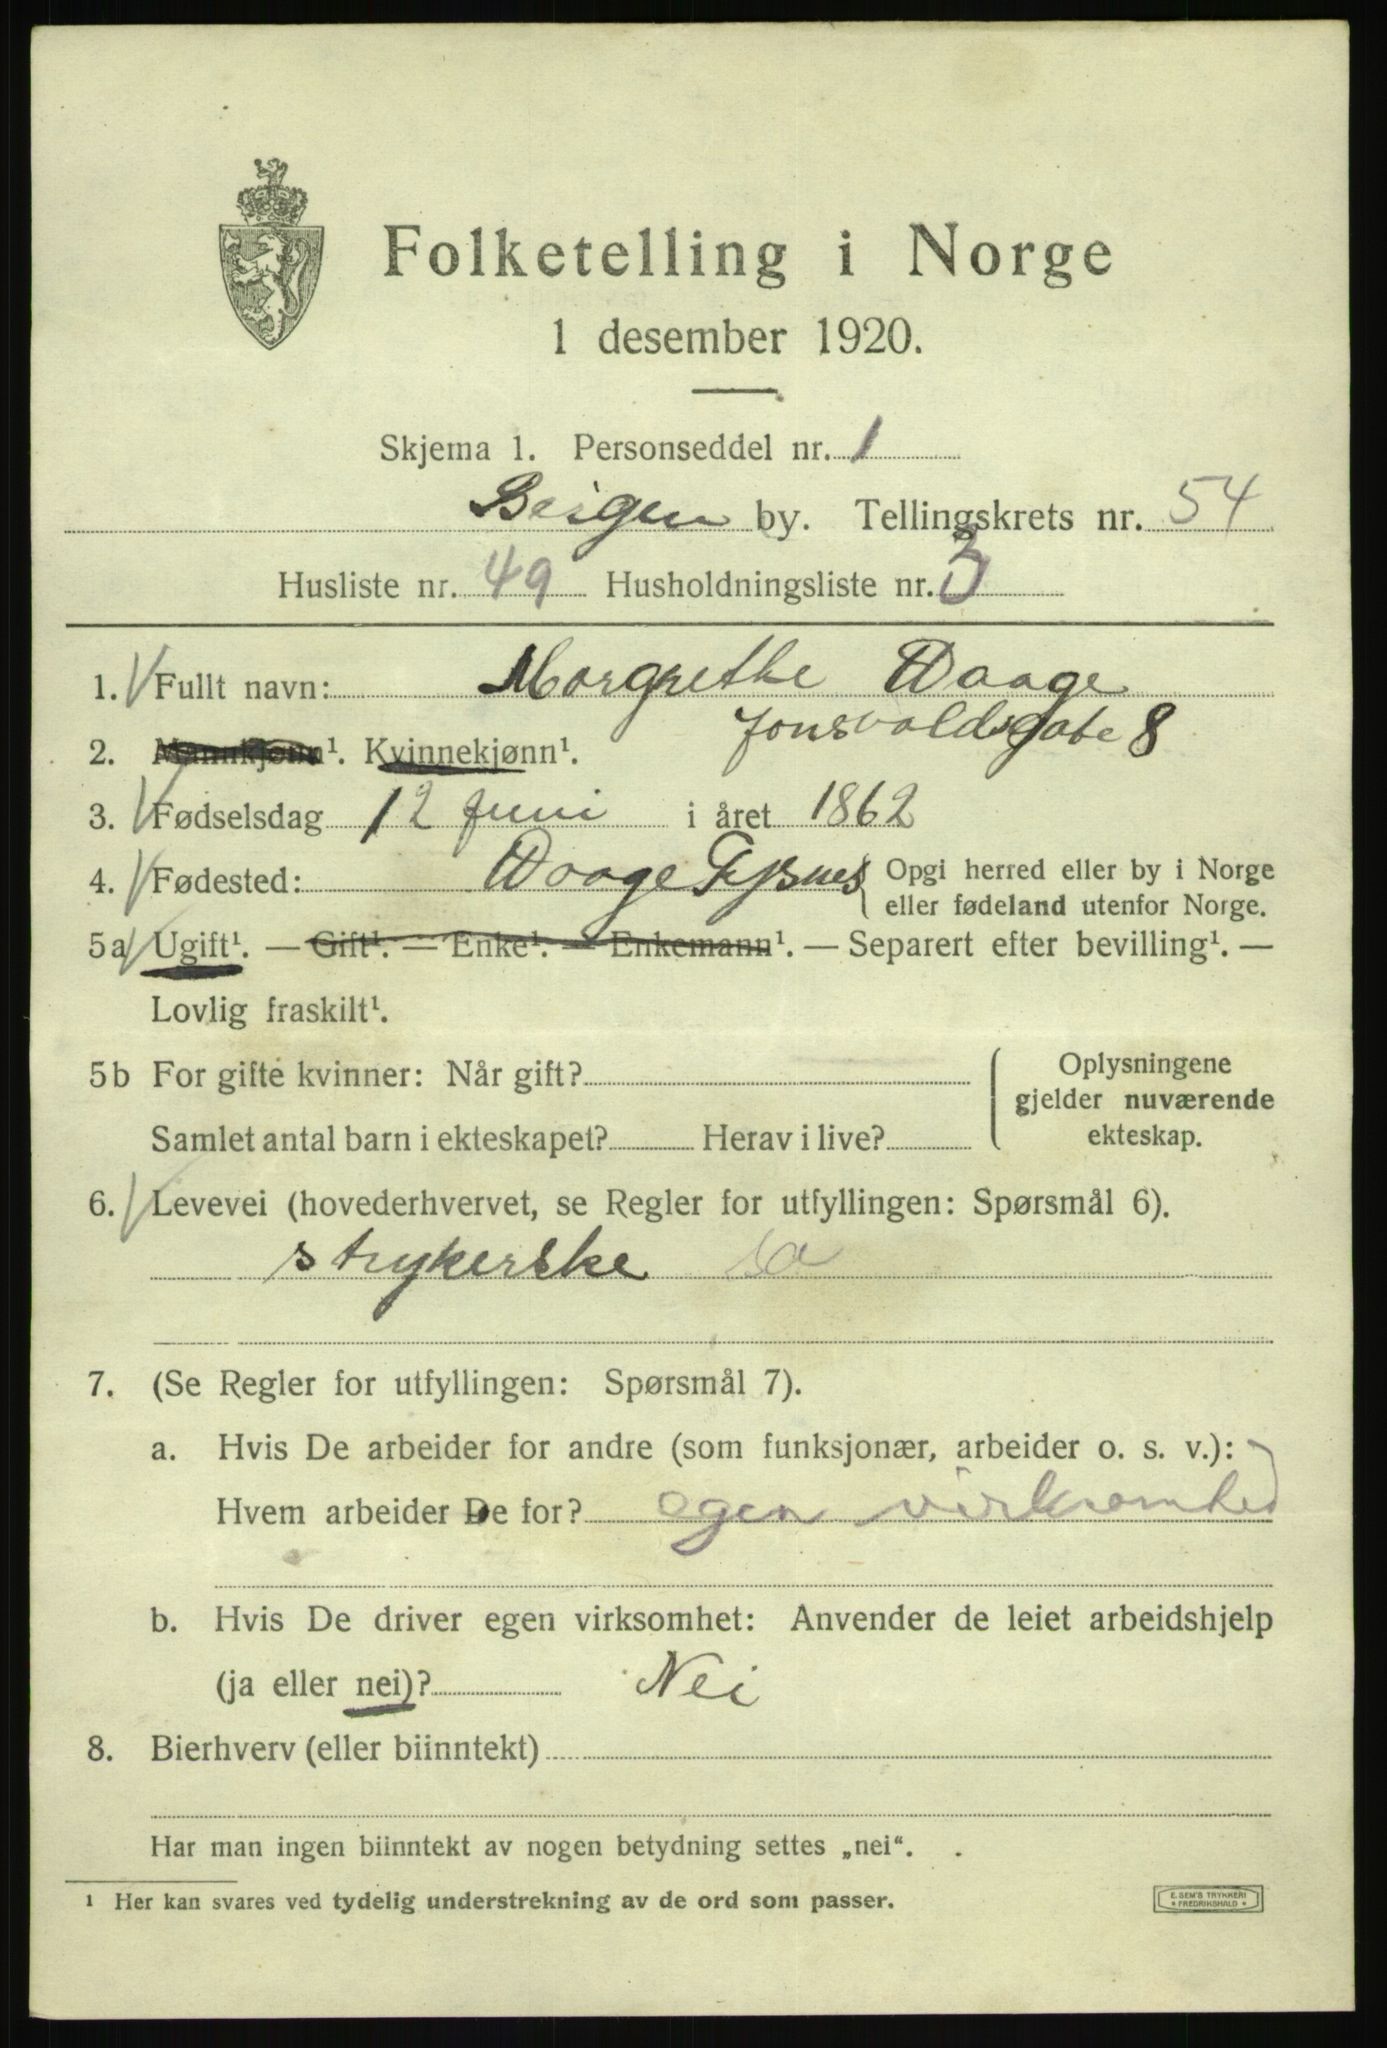 Folketelling i Norge
1 desember 1920.
Skjema 1. Personseddel nr. 1
Bergen by. Tellingskrets nr. 54
Husliste nr. 49 Husholdningsliste nr. 3
1. Fullt navn: Margrethe Waage
Jonsvoldsgate 8
2. Mannkjønn¹. Kvinnekjønn¹.
3. Fødselsdag 12 Juni i året 1862
4. Fødested: Waage Tysnes Opgi herred eller by i Norge
eller fødeland utenfor Norge.
5a Ugift¹. — Gift¹. — Enke¹. — Enkemann¹. — Separert efter bevilling¹. —
Lovlig fraskilt¹.
5b For gifte kvinner: Når gift?
Samlet antal barn i ekteskapet? Herav i live?
Oplysningene
gjelder nuværende
ekteskap.
6. Levevei (hovederhvervet, se Regler for utfyllingen: Spørsmål 6).
strykerske
7. (Se Regler for utfyllingen: Spørsmål 7).
a. Hvis De arbeider for andre (som funksjonær, arbeider o. s. v.):
Hvem arbeider De for? egen virksomhed
b. Hvis De driver egen virksomhet: Anvender de leiet arbeidshjelp
(ja eller nei)? Nei
8. Bierhverv (eller biinntekt)
Har man ingen biinntekt av nogen betydning settes „nei“.
¹ Her kan svares ved tydelig understrekning av de ord som passer.
E. SEM'S TRYKKERI
* FREDRIKSHALD *